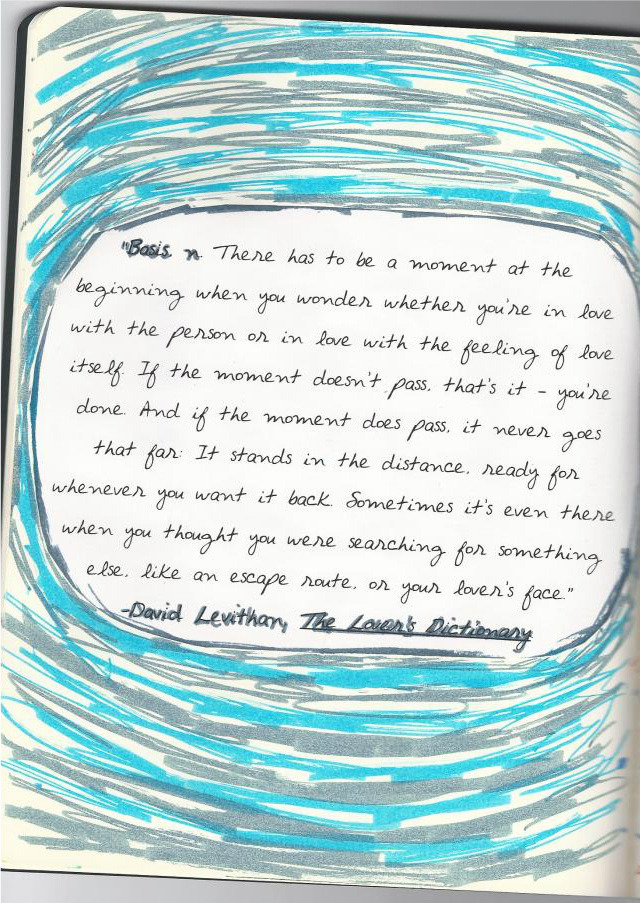 "Basis, n. There has to be a moment at the
beginning when you wonder whether you're in love
with the person or in love with the feeling of love
itself. If the moment doesn't pass, that's it – you're
done. And if the moment does pass, it never goes
that far: It stands in the distance, ready for
whenever you want it back. Sometimes it's even there
when you thought you were searching for something
else, like an escape route, or your lover's face."
-David Levithan, The Lover's Dictionary